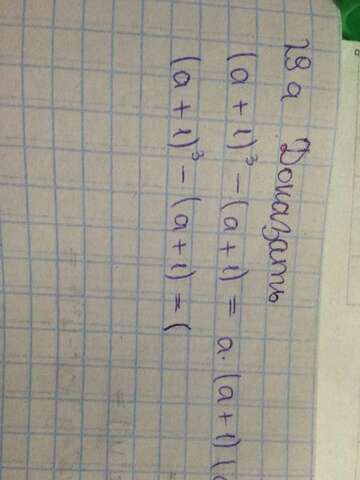 29 а Доказать
(a + 1)³ − (a + 1) = a · (a + 1) (
(a + 1)³ − (a + 1) = (